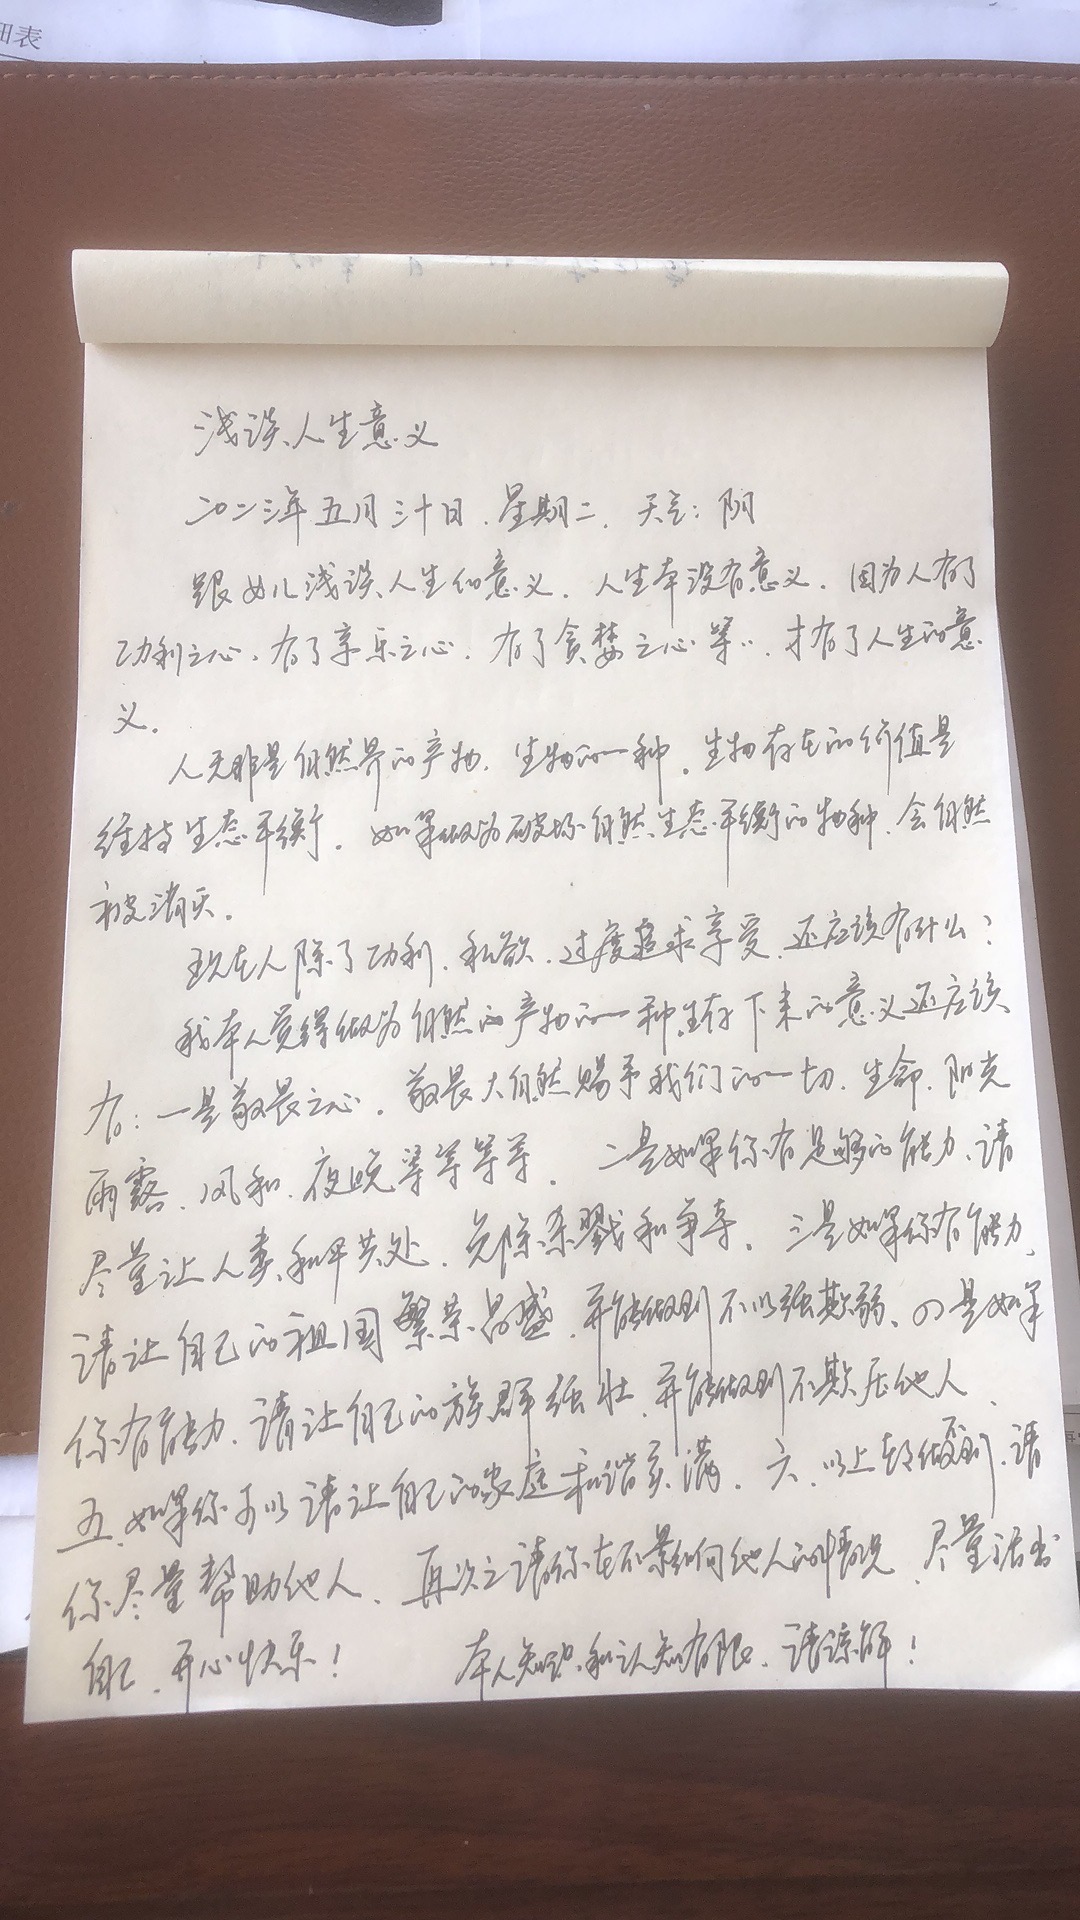 细表
浅谈人生意义
二〇二三年五月三十日.星期二.天气:阴
跟女儿浅谈人生的意义.人生本没有意义.因为人有了
功利之心.有了享乐之心.有了贪婪之心等..才有了人生的意
义。
人无非是自然界的产物.生物的一种。生物存在的价值是
维持生态平衡。如果做为破坏自然生态平衡的物种.会自然
被消灭。
现在人除了功利.私欲.过度追求享受.还应该有什么?
我本人觉得做为自然的产物的一种.生存下来的意义还应该
有:一是敬畏之心。敬畏大自然赐予我们的一切.生命.阳光
雨露.风和.夜晚等等等等.二是如果你有足够的能力、请
尽量让人类和平共处.免除杀戮和争夺。三是如果你有能力、
请让自己的祖国繁荣昌盛.并能做到不以强欺弱、四是如果
你有能力.请让自己的族群强壮.并能做到不欺压他人、
五.如果你可以请让自己的家庭和谐美满。六、以上都做到.请
你尽量帮助他人、再次之请你在不影响他人的情况.尽量活出
自己.开心快乐! 本人知识和认知有限.请谅解!